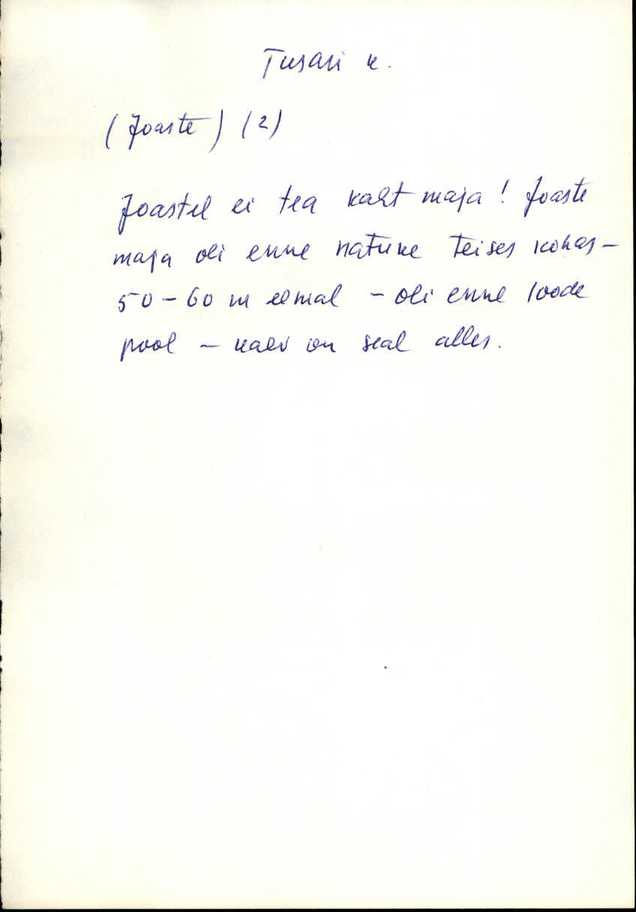 Tusari k.
(Joaste) (2)
Joastel ei tea kaht maja! Joaste
maja oli enne natuke teises kohas –
50 – 60 m eemal – oli enne loode
pool – kaev on seal alles.